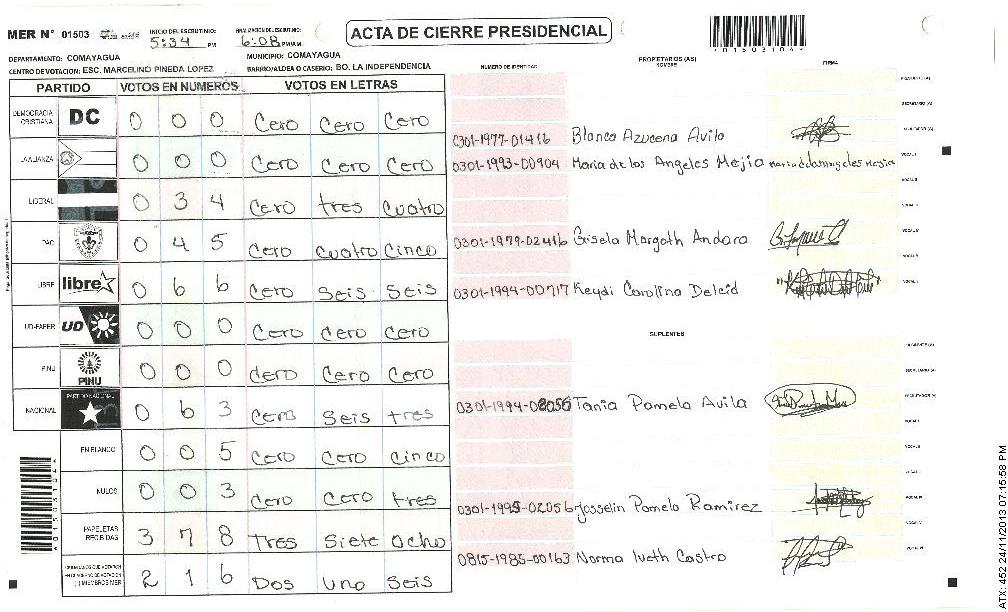 MER N° 01503
INICIO DEL ESCRUTINIO: 5:34 PM
FINALIZACION DEL ESCRUTINIO: 6:08 PM/AM
ACTA DE CIERRE PRESIDENCIAL
DEPARTAMENTO: COMAYAGUA
MUNICIPIO: COMAYAGUA
CENTRO DE VOTACION: ESC. MARCELINO PINEDA LOPEZ
BARRIO/ALDEA O CASERIO: BO. LA INDEPENDENCIA
PARTIDO VOTOS EN NUMEROS VOTOS EN LETRAS
DEMOCRACIA CRISTIANA DC 0 0 0 Cero Cero Cero
LA ALIANZA 0 0 0 Cero Cero Cero
LIBERAL 0 3 4 Cero tres Cuatro
PAC 0 4 5 Cero Cuatro Cinco
LIBRE libre 0 6 6 Cero Seis Seis
UD-FAPER UD 0 0 0 Cero Cero Cero
PINU PINU 0 0 0 Cero Cero Cero
NACIONAL PARTIDO NACIONAL 0 6 3 Cero Seis tres
EN BLANCO 0 0 5 Cero Cero Cinco
NULOS 0 0 3 Cero Cero tres
PAPELETAS RECIBIDAS 3 7 8 Tres Siete Ocho
2 1 6 Dos Uno Seis
NUMERO DE IDENTIDAD
PROPIETARIOS (AS)
NOMBRE
FIRMA
0301-1977-01416 Blanca Azucena Avila
0301-1993-00904 Maria de los Angeles Mejia
0301-1979-02416 Gisela Margoth Andara
0301-1994-00717 Keydi Carolina Deleid
SUPLENTES
0301-1994-02056 Tania Pamela Avila
0301-1995-02056 Josselin Pamela Ramirez
0815-1985-00163 Norma Iveth Castro
ATX: 452 24/11/2013 07:15:58 PM